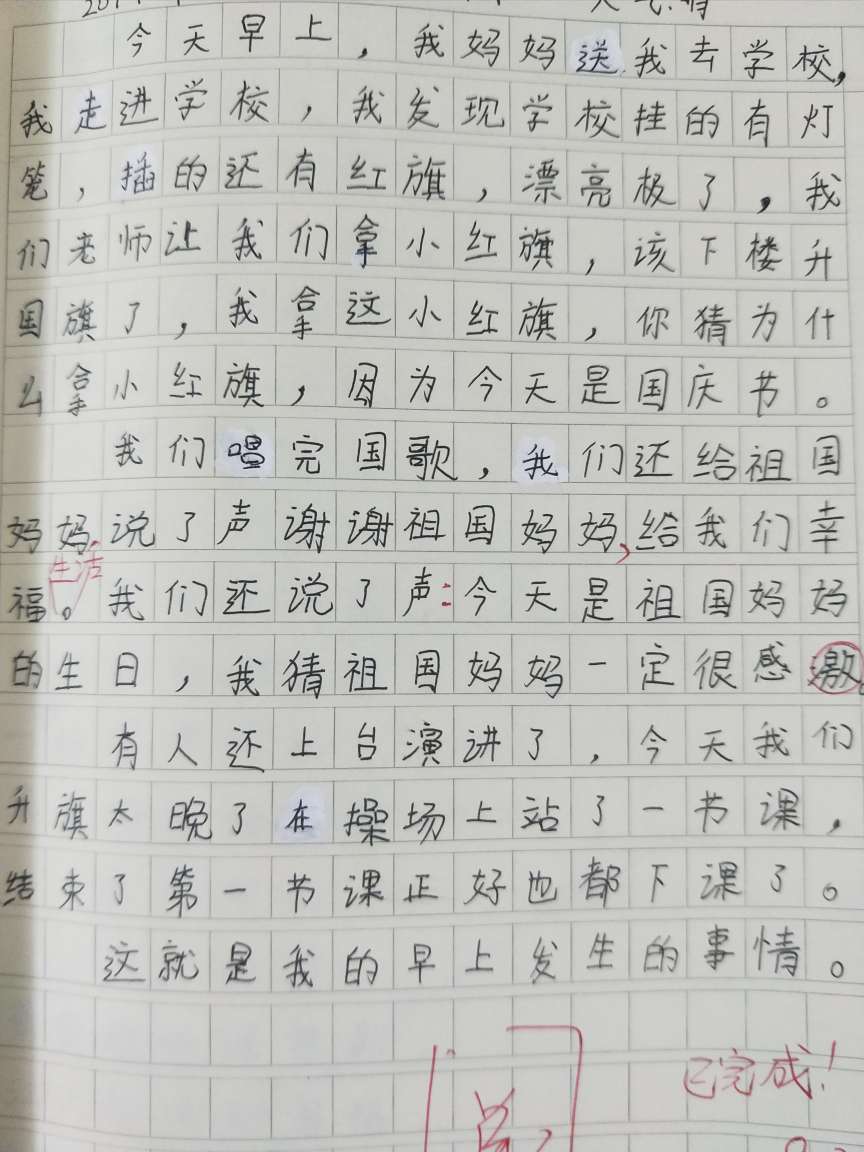 今天早上，我妈妈送我去学校，
我走进学校，我发现学校挂的有灯
笼，插的还有红旗，漂亮极了，我
们老师让我们拿小红旗，该下楼升
国旗了，我拿这小红旗，你猜为什
么拿小红旗，因为今天是国庆节。
我们唱完国歌，我们还给祖国
妈妈，说了声谢谢祖国妈妈，给我们幸
生活
福。我们还说了声：今天是祖国妈妈
的生日，我猜祖国妈妈一定很感激。
有人还上台演讲了，今天我们
升旗太晚了在操场上站了一节课，
结束了第一节课正好也都下课了。
这就是我的早上发生的事情。
已完成！